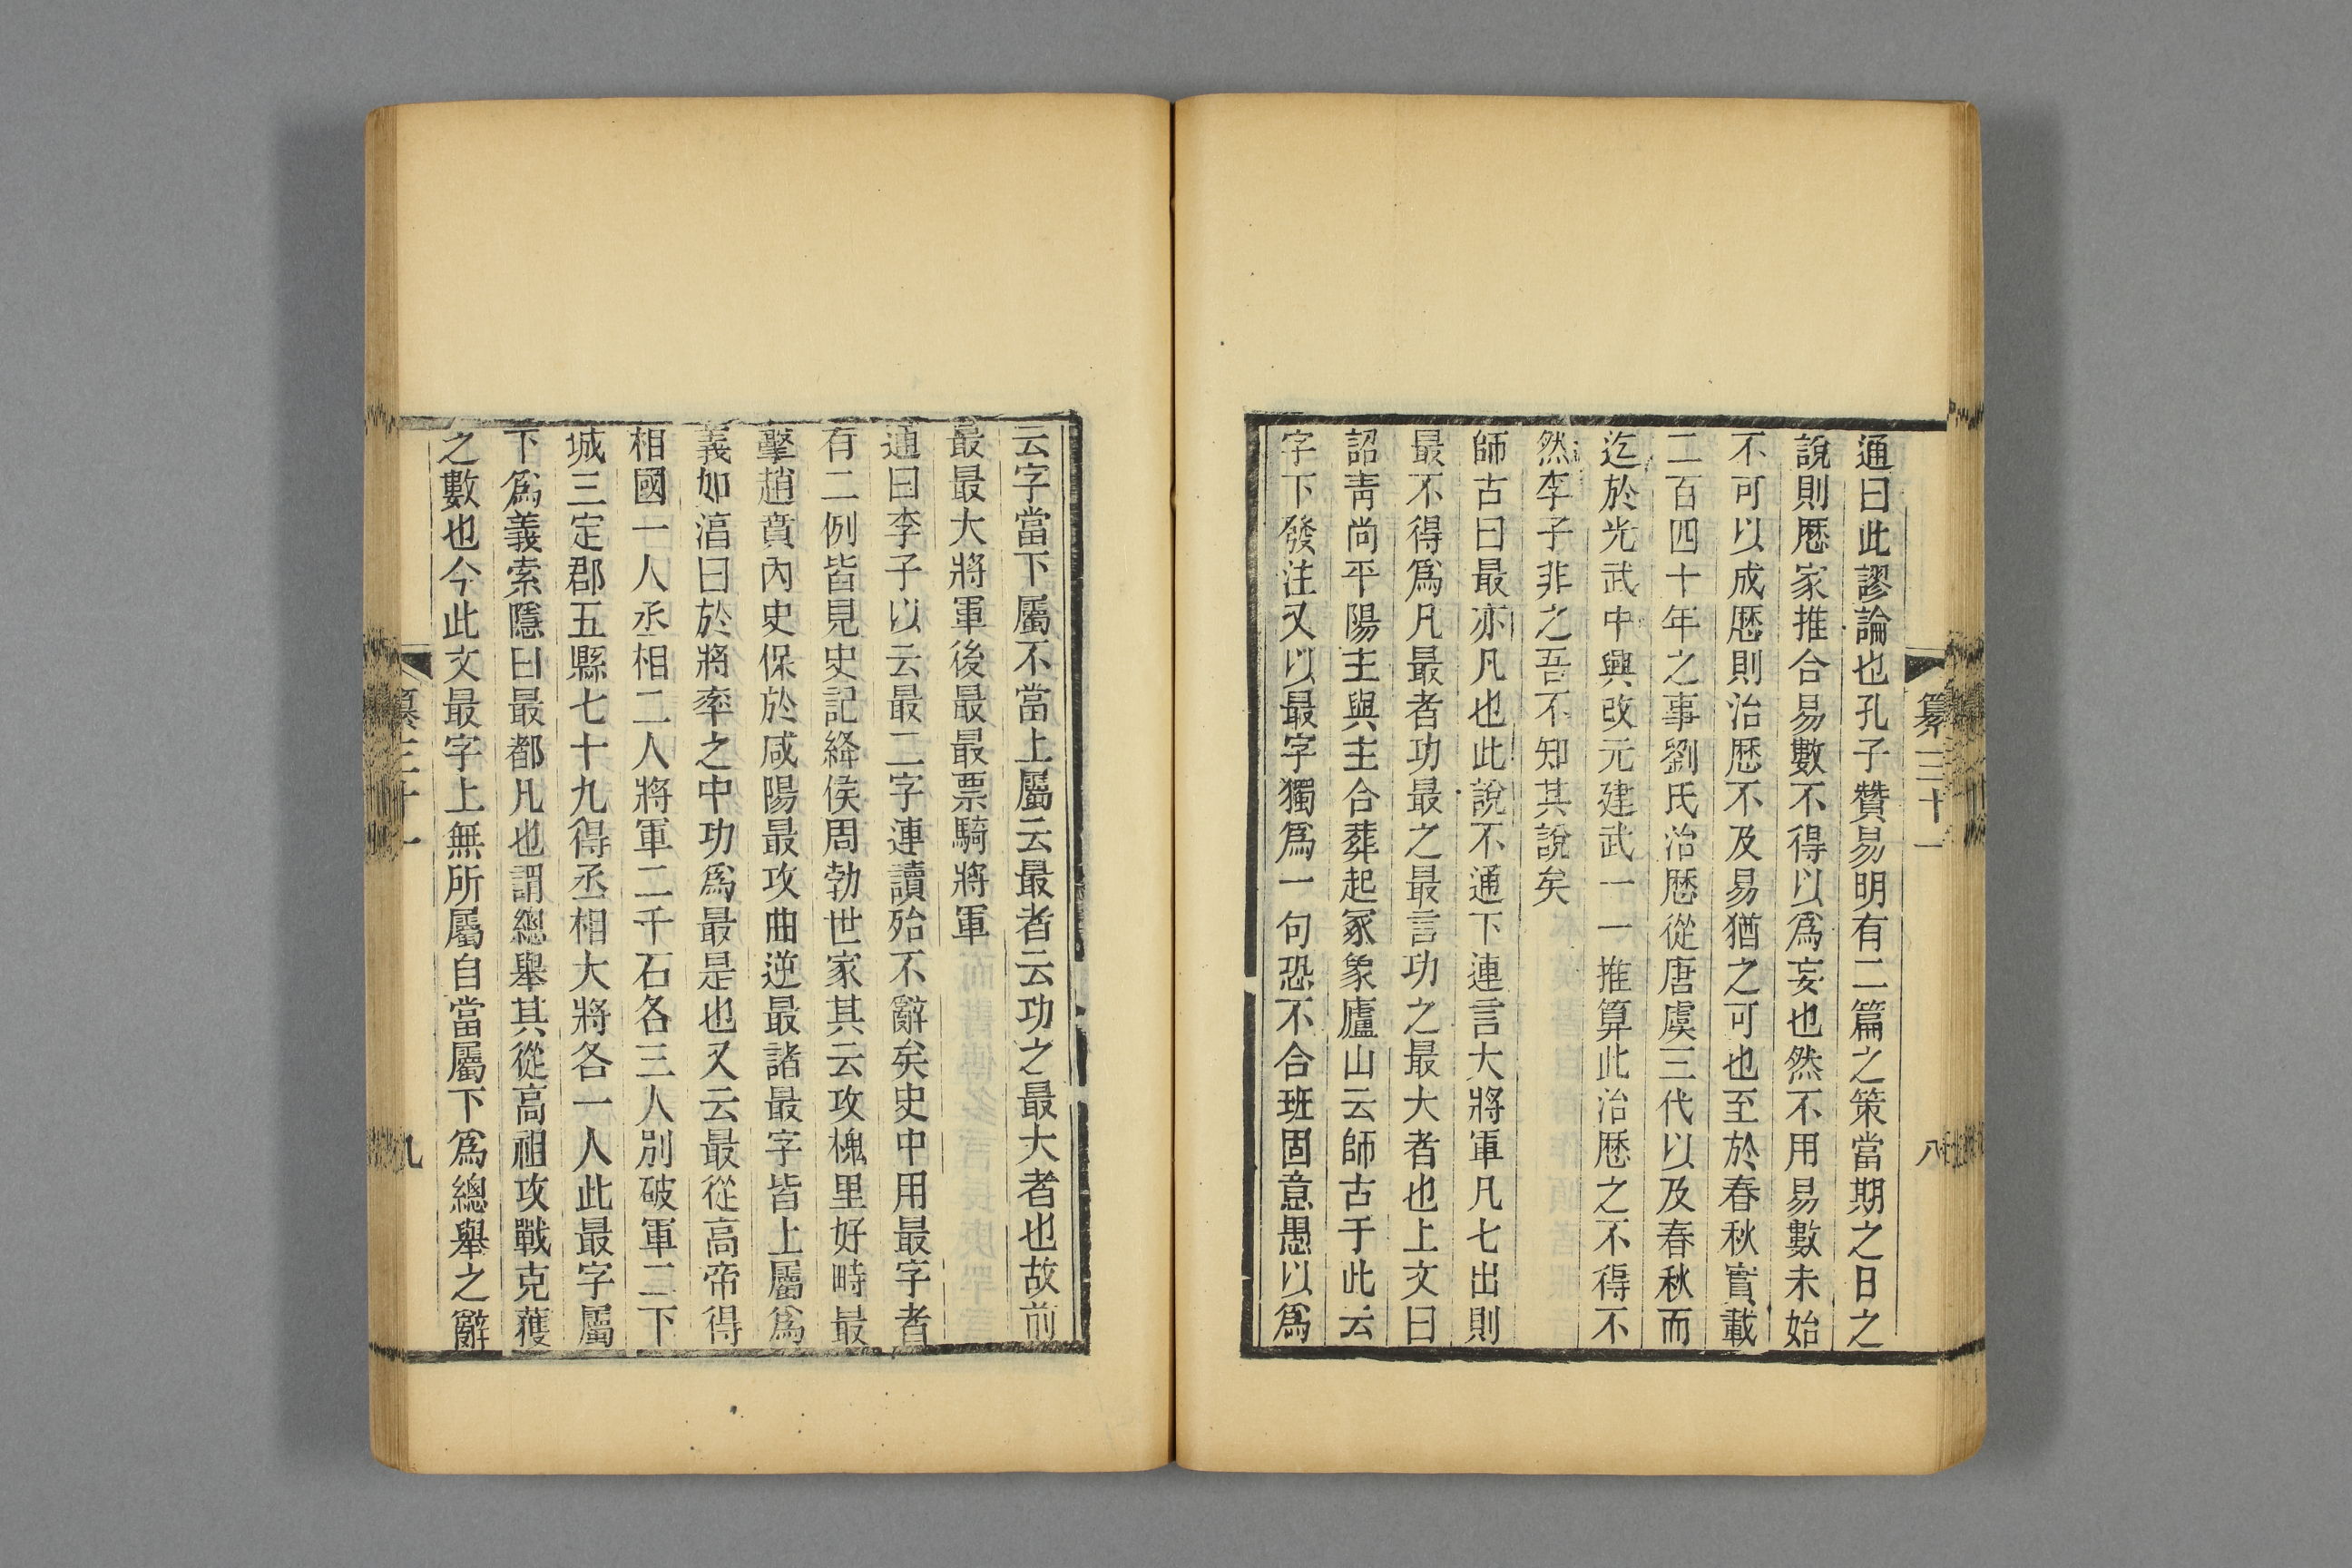 纂三十一
八
通曰此謬論也孔子贊易明有二篇之策當期之日之
說則厯家推合易數不得以爲妄也然不用易數未始
不可以成厯則治厯不及易猶之可也至於春秋實載
二百四十年之事劉氏治厯從唐虞三代以及春秋而
迄於光武中興改元建武一一推算此治厯之不得不
然李子非之吾不知其說矣
師古曰最亦凡也此說不通下連言大將軍凡七出則
最不得爲凡最者功最之最言功之最大者也上文曰
詔青尚平陽主與主合葬起冢象廬山云師古于此云
字下發注又以最字獨爲一句恐不合班固意愚以爲
云字當下屬不當上屬云最者云功之最大者也故前
最最大將軍後最最票騎將軍
通曰李子以云最二字連讀殆不辭矣史中用最字者
有二例皆見史記絳侯周勃世家其云攻槐里好畤最
擊趙賁內史保於咸陽最攻曲逆最諸最字皆上屬爲
義如湻曰於將率之中功爲最是也又云最從高帝得
相國一人丞相二人將軍二千石各三人別破軍二下
城三定郡五縣七十九得丞相大將各一人此最字屬
下爲義索隱曰最都凡也謂總舉其從高祖攻戰克獲
之數也今此文最字上無所屬自當屬下爲總舉之辭
纂三十一
九